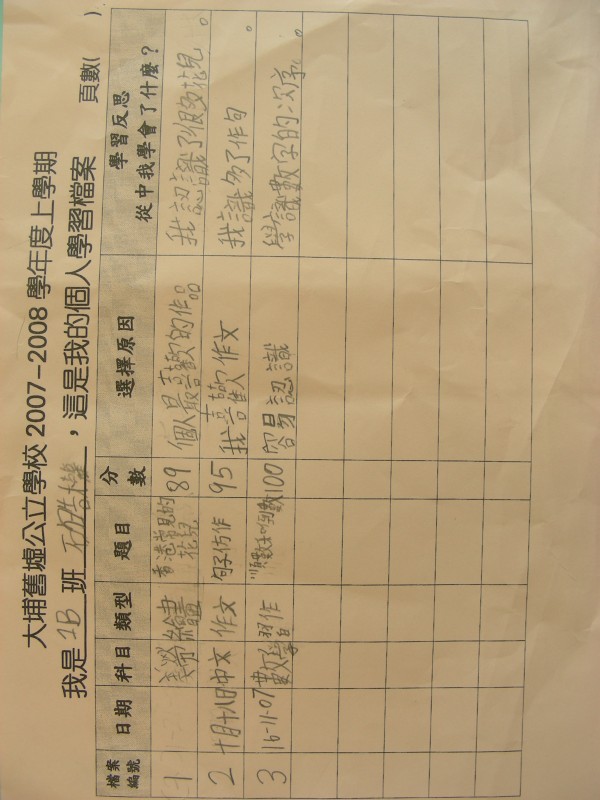 大埔舊墟公立學校 2007-2008 學年度上學期
我是 1B 班，這是我的個人學習檔案 頁數( )
檔案編號 日期 科目 類型 題目 分數 選擇原因 學習反思 從中我學會了什麼？
1 美勞 繪畫 香港常見的花兒 89 個人最喜歡的作品 我認識了很多花兒。
2 十月十八日 中文 作文 句子仿作 95 我喜歡作文 我識多了作句。
3 16-11-07 數學 習作 順數和倒數 100 容易認識 學識數字的次序。